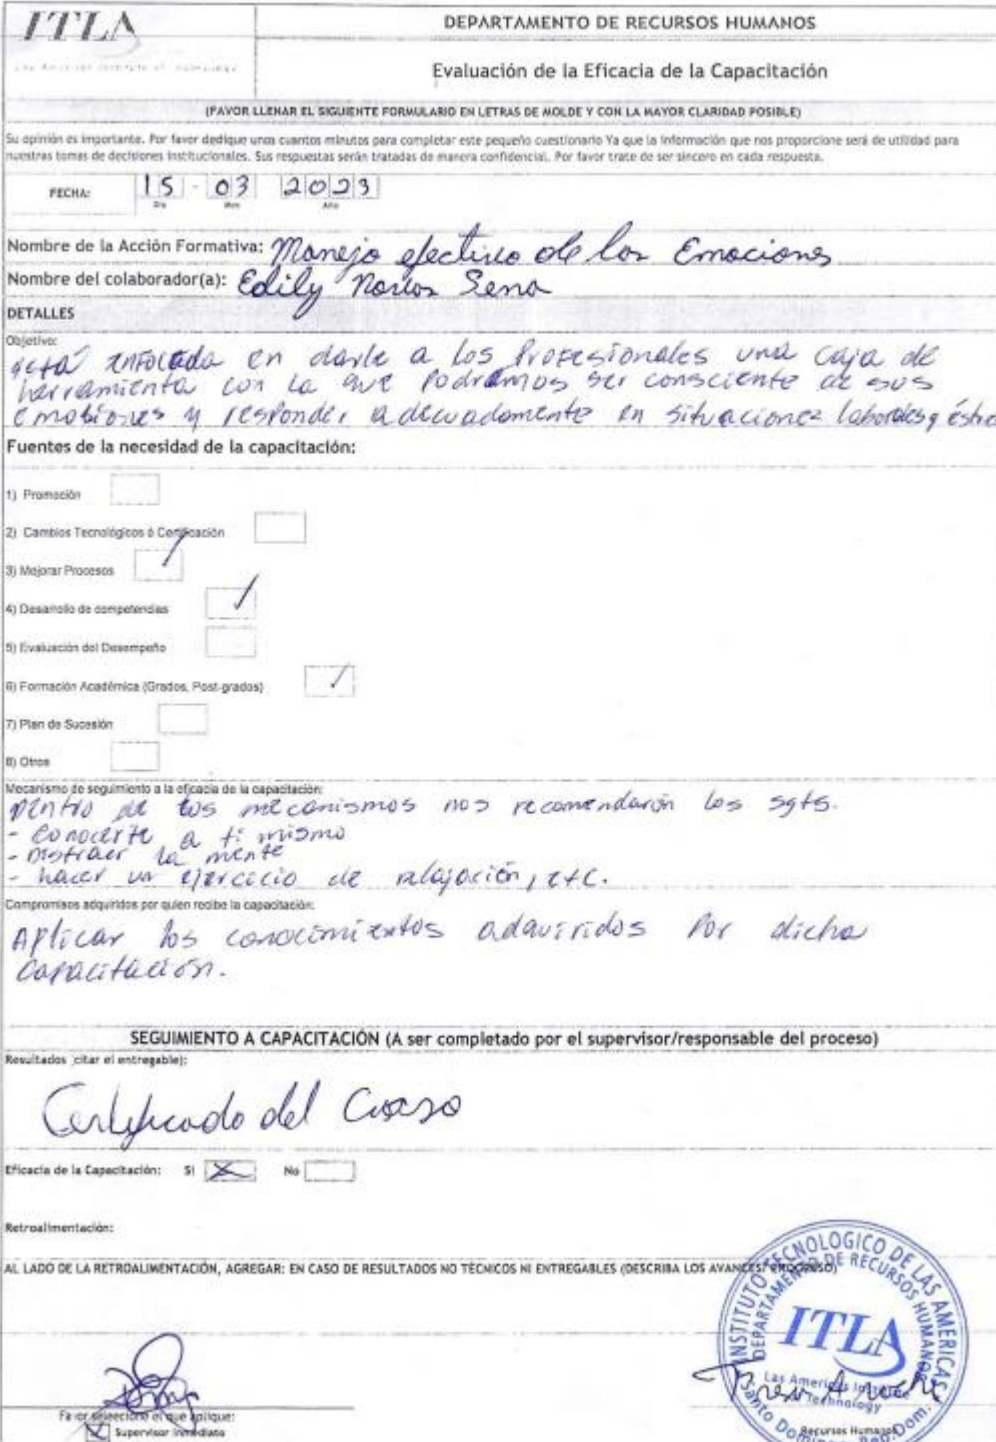 ITLA
DEPARTAMENTO DE RECURSOS HUMANOS
Las Americas Institute of Technology
Evaluación de la Eficacia de la Capacitación
(FAVOR LLENAR EL SIGUIENTE FORMULARIO EN LETRAS DE MOLDE Y CON LA MAYOR CLARIDAD POSIBLE)
Su opinión es importante. Por favor dedique unos cuantos minutos para completar este pequeño cuestionario Ya que la información que nos proporcione será de utilidad para
nuestras tomas de decisiones institucionales. Sus respuestas serán tratadas de manera confidencial. Por favor trate de ser sincero en cada respuesta.
FECHA: 15 - 03 2023
Día Mes Año
Nombre de la Acción Formativa: Manejo efectivo de las Emociones
Nombre del colaborador(a): Edily Sena
DETALLES
Objetivo:
está enfocada en darle a los Profesionales una caja de
herramienta con la que Podramos ser consciente de sus
emociones y responder adecuadamente en situaciones laborales y éstre
Fuentes de la necesidad de la capacitación:
1) Promoción
2) Cambios Tecnológicos ó Certificación
3) Mejorar Procesos
4) Desarrollo de competencias
5) Evaluación del Desempeño
6) Formación Académica (Grados, Post-grados)
7) Plan de Sucesión
8) Otros
Mecanismo de seguimiento a la eficacia de la capacitación:
Dentro de los mecanismos nos recomendarón los sgts.
- Conocerte a ti mismo
- Distraer la mente
- hacer un ejercicio de relajación, etc.
Compromisos adquiridos por quien recibe la capacitación:
Aplicar los conocimientos adquiridos Por dicha
Capacitación.
SEGUIMIENTO A CAPACITACIÓN (A ser completado por el supervisor/responsable del proceso)
Resultados (citar el entregable):
Certificado del Curso
Eficacia de la Capacitación: Si X No
Retroalimentación:
AL LADO DE LA RETROALIMENTACIÓN, AGREGAR: EN CASO DE RESULTADOS NO TÉCNICOS NI ENTREGABLES (DESCRIBA LOS AVANCES/ PROGRESO)
INSTITUTO TECNOLOGICO DE LAS AMERICAS
DEPARTAMENTO DE RECURSOS HUMANOS
ITLA
Las Americas Institute
of Technology
Santo Domingo, Rep. Dom.
Favor seleccione el que aplique:
Supervisor Inmediato
Recursos Humanos